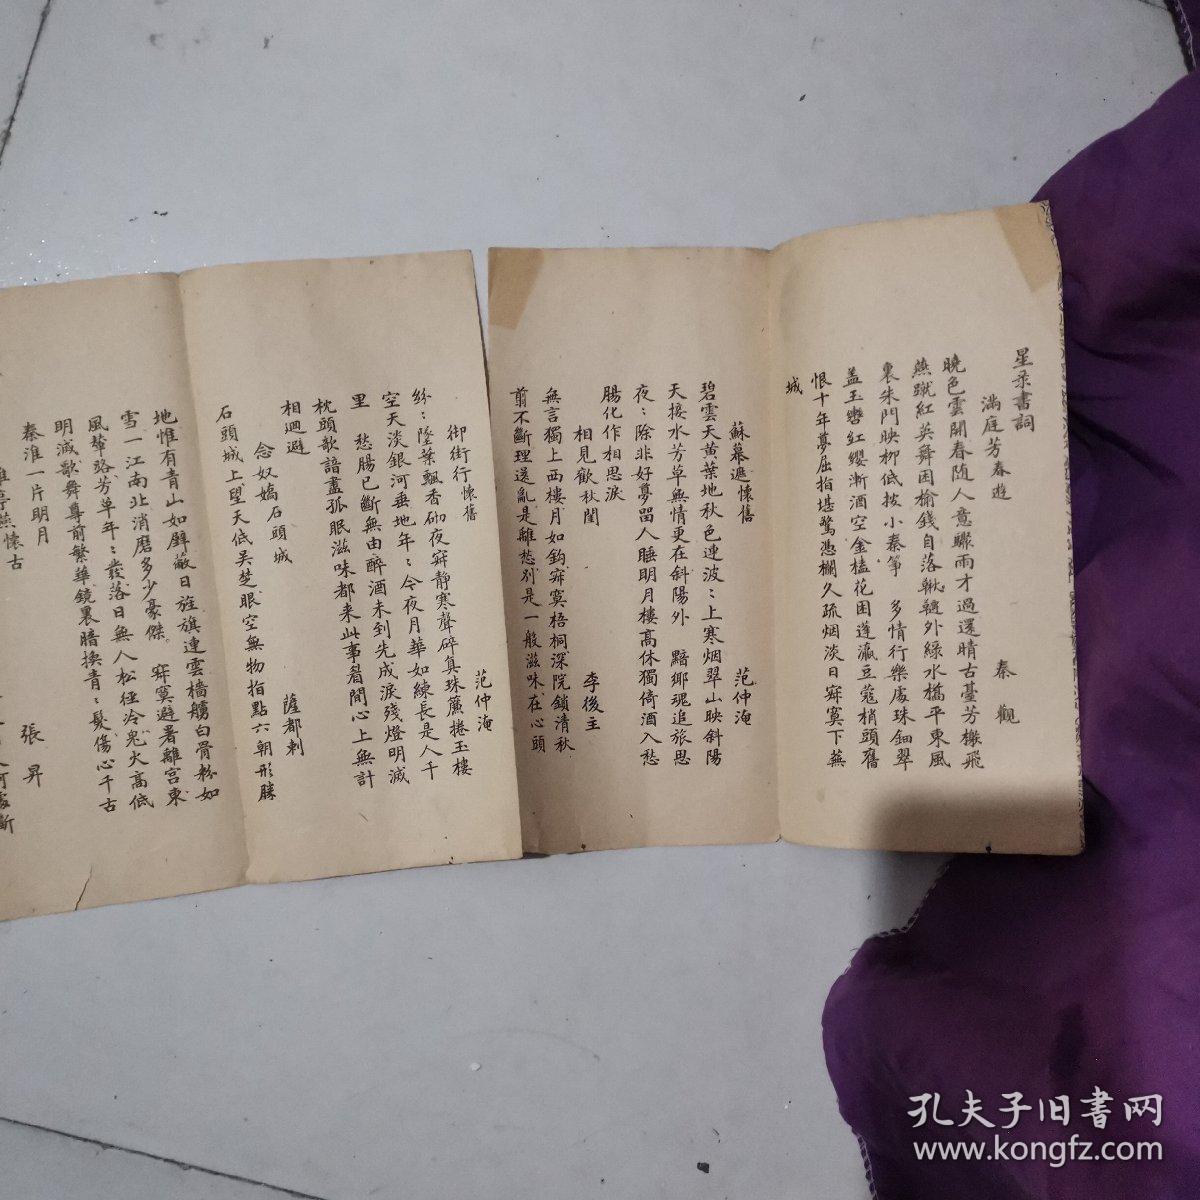 星录書詞
滿庭芳春遊　秦觀
曉色雲開春随人意驟雨才過還晴古臺芳榭飛
燕蹴紅英舞困榆錢自落鞦韆外綠水橋平東風
裏朱門映柳低按小秦箏　多情行樂處珠鈿翠
盖玉轡紅纓漸酒空金榼花困蓬瀛豆蔻梢頭舊
恨十年夢屈指堪驚憑欄久疏烟淡日寂寞下蕪
城
蘇幕遮懷舊　范仲淹
碧雲天黄葉地秋色連波：上寒烟翠山映斜陽
天接水芳草無情更在斜陽外　黯鄉魂追旅思
夜：除非好夢留人睡明月樓高休獨倚酒入愁
腸化作相思淚
相見歡秋閨　李後主
無言獨上西樓月如鈎寂寞梧桐深院鎖清秋
剪不斷理還亂是離愁别是一般滋味在心頭
御街行懷舊　范仲淹
紛：墜葉飄香砌夜寂静寒聲碎真珠簾捲玉樓
空天淡銀河垂地年：今夜月華如練長是人千
里　愁腸已斷無由醉酒未到先成淚殘燈明滅
枕頭欹諳盡孤眠滋味都来此事眉間心上無計
相迴避
念奴嬌石頭城　薩都剌
石頭城上望天低吴楚眼空無物指點六朝形勝
地惟有青山如壁蔽日旌旗連雲檣艣白骨紛如
雪一江南北消磨多少豪傑。　寂寞避暑離宮東
風輦路芳草年：發落日無人松徑冷鬼火高低
明滅歌舞尊前繁華鏡裏暗換青：髮傷心千古
秦淮一片明月
離亭燕懷古　張昇
孔夫子旧書网
www.kongfz.com